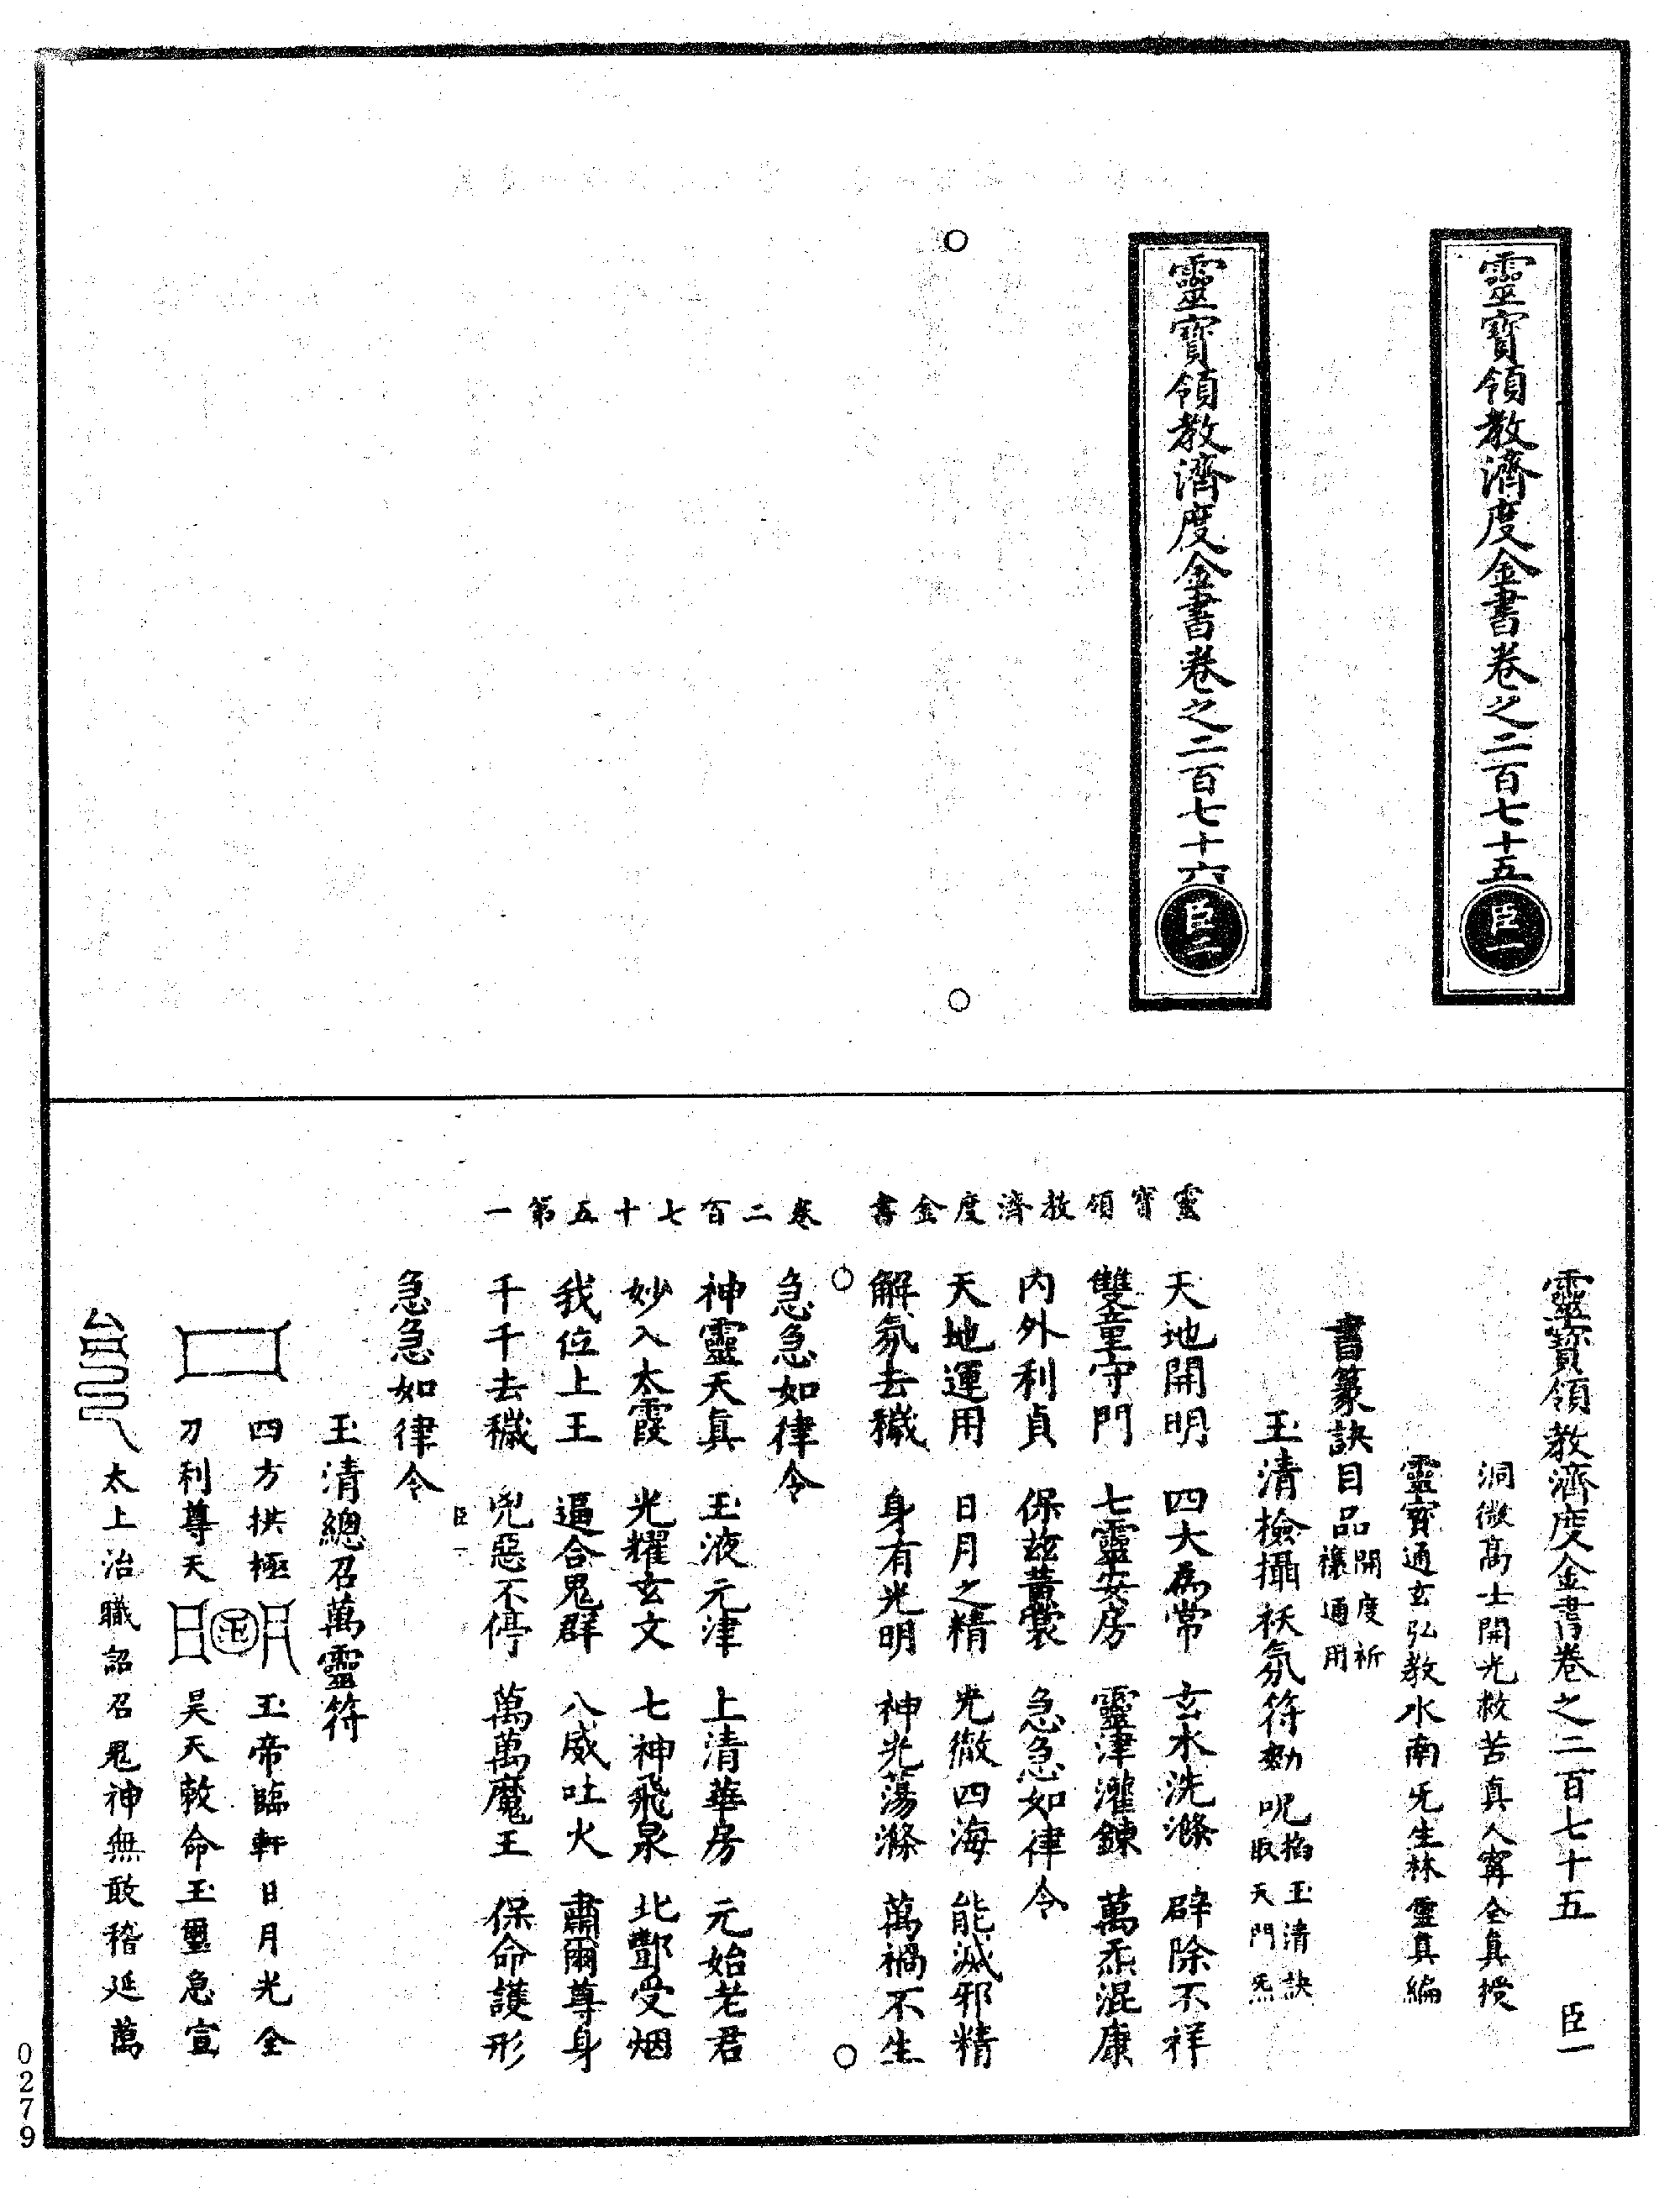 靈寶領教濟度金書卷之二百七十五
臣一
靈寶領教濟度金書卷之二百七十六
臣二
靈寶領教濟度金書 卷二百七十五第一
靈寶領教濟度金書卷之二百七十五 臣一
洞微高士開光救苦真人寗全真授
靈寶通玄弘教水南先生林靈真編
書篆訣目品 開度祈禳通用
玉清撿攝袄氛符勑呪 掐玉清訣取天門炁
天地開明 四大為常 玄水洗滌 辟除不祥
雙童守門 七靈安房 靈津灌鍊 萬炁混康
內外利貞 保玆黃裳 急急如律令
天地運用 日月之精 光徹四海 能滅邪精
解氛去穢 身有光明 神光蕩滌 萬禍不生
急急如律令
神靈天真 玉液元津 上清華房 元始老君
妙入太霞 光耀玄文 七神飛泉 北酆受烟
我位上王 逼合鬼群 八威吐火 肅爾尊身
千千去穢 兇惡不停 萬萬魔王 保命護形
臣一
急急如律令
玉清總召萬靈符
四方拱極 玉帝臨軒日月光全
刀利尊天 昊天敕命玉璽急宣
太上治職詔召鬼神無敢稽延萬
0279